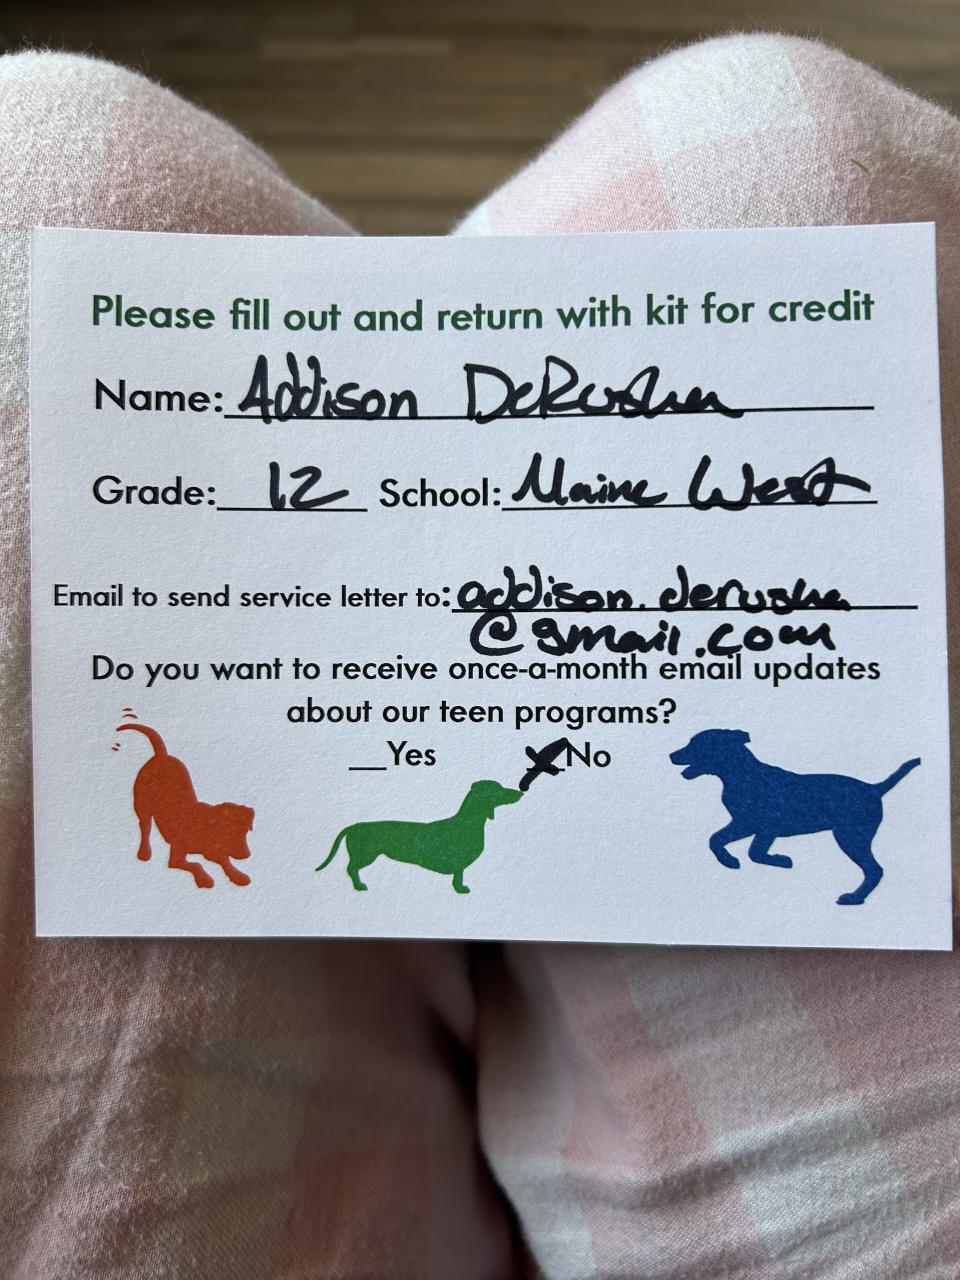 Please fill out and return with kit for credit
Name: Addison DeRusha
Grade: 12 School: Maine West
Email to send service letter to: addison.derusha
@gmail.com
Do you want to receive once-a-month email updates
about our teen programs?
__Yes XNo